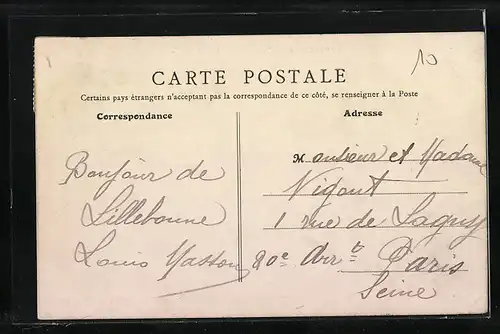 10
CARTE POSTALE
Certains pays étrangers n'acceptent pas la correspondance de ce côté, se renseigner à la Poste
Correspondance
Adresse
Bonjour de
Lillebonne
Louis Masson
Monsieur et Madame
Vigout
1 rue de Lagny
20e Arrt Paris
Seine